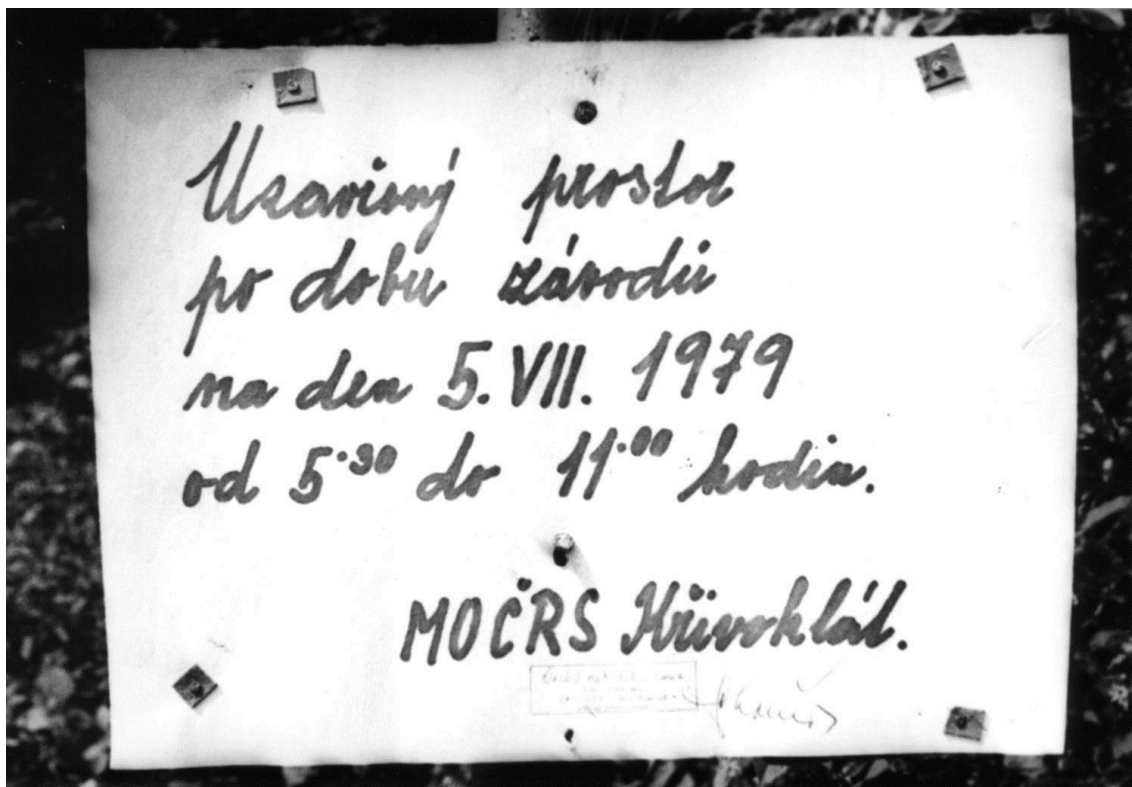 Uzavřený prostor
po dobu závodů
na den 5. VII. 1979
od 5.30 do 11.00 hodin.
MOČRS Křivoklát.